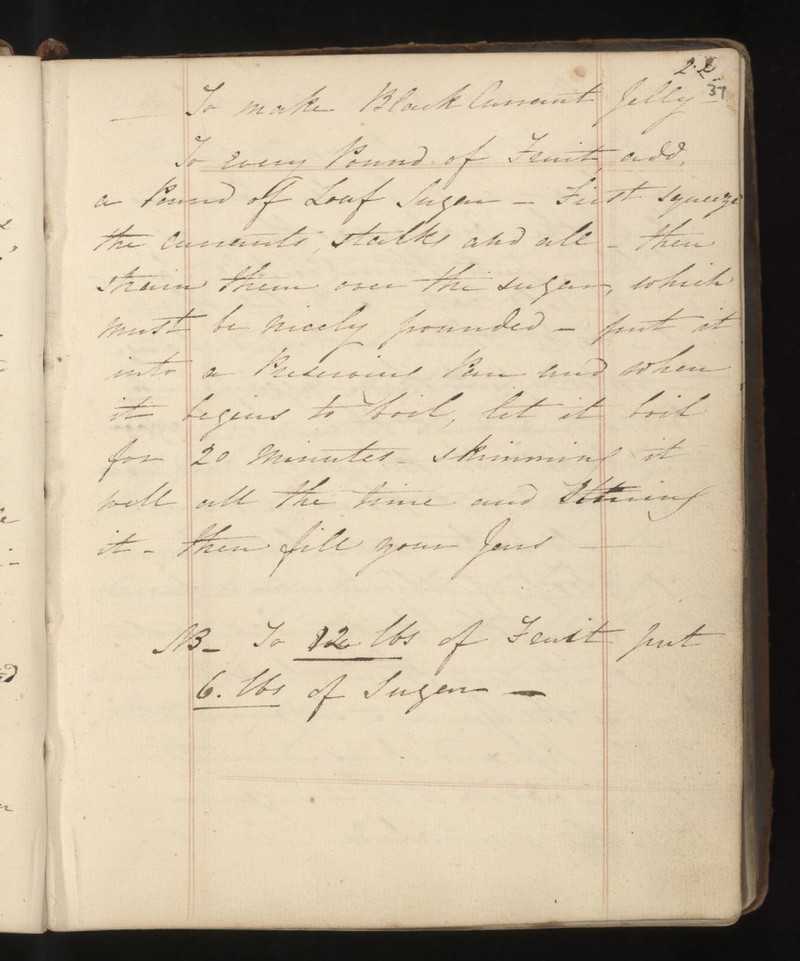 22
37
To make Black Currant Jelly
To every Pound of Fruit, add,
a Pound of Loaf Sugar - First squeeze
the currants, stalks and all - then
strain them over the sugar, which
must be nicely pounded - put it
into a Preserving Pan and when
it begins to boil, let it boil
for 20 minutes - skimming it
well all the time and Stirring
it - then fill your Jars
NB - To 12 lbs of Fruit put
6. lbs of Sugar -